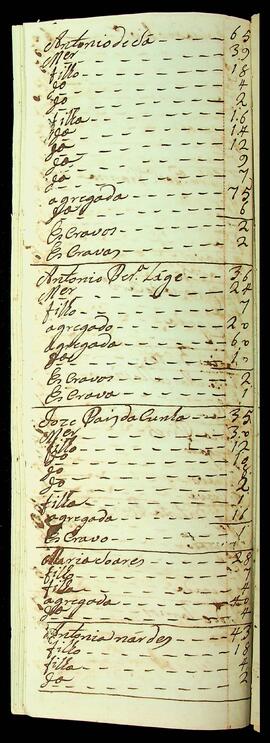 Antonio de Sa 65
Mer 39
fillo 18
do 4
do 2
filla 16
da 14
da 12
da 9
da 7
agregada 75
da 6
Escravos 2
Escravas 2
Antonio Lage 36
Mer 24
fillo 7
agregado 20
agregada 60
da
Escravos 2
Escrava 1
Joze Pais da Cunha 35
Mer 30
fillo 12
do
do 8
do 2
filla 1
agregada
Escravo 1
Maria Soares 28
fillo
filla
agregada
da
Antonia nardes 43
fillo 18
filla 4
da 2